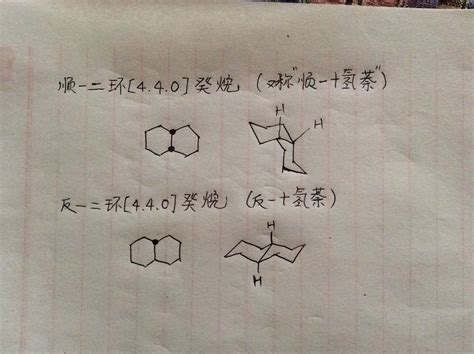 顺一二环[4.4.0]癸烷 (又称"顺一十氢萘")
H
H
反一二环[4.4.0]癸烷 (反一十氢萘)
H
H